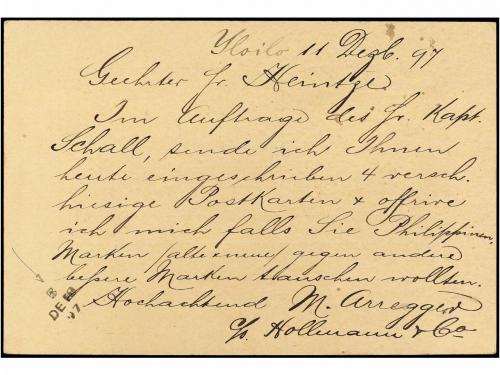 Yloilo 11 Dezb. 97
Geehrter Hr. Heintze
Im Auftrage des Hr. Kapt.
Schall, sende ich Ihnen
heute eingeschrieben 4 versch.
hiesige Postkarten & offrire
ich mich falls Sie Philippinen
Marken (alte & neue) gegen andere
beßere Marken tauschen wollten.
Hochachtend M. Arregger
c/o Hollmann & Co
DE
97